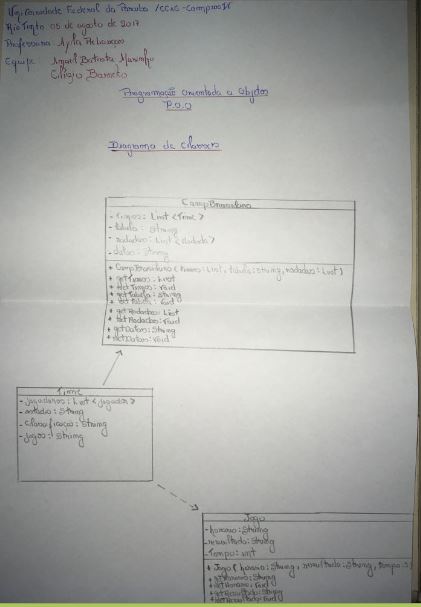 Universidade Federal da Paraíba /CCAE-Campus IV
Rio Tinto 05 de agosto de 2017
Professora: Ayla Rebouças
Equipe: Batista Marinho
Barreto
Programação orientada a Objetos
P.O.O
Diagrama de Classes
CampBrasileiro
- Times: List <Time>
- tabela: String
- rodadas: List <Rodada>
- datas: String
+ CampBrasileiro (times: List, tabela: String, rodadas: List)
+ getTimes: List
+ setTimes: void
+ getTabela: String
+ setTabela: void
+ getRodadas: List
+ setRodadas: void
+ getDatas: String
+ setDatas: void
Time
- jogadores: List <jogador>
- estado: String
- classificação: String
- jogos: String
Jogo
- horario: String
- resultado: String
- Tempo: int
+ Jogo (horario: String, resultado: String, tempo:
+ getHorario: String
+ setHorario: void
+ getResultado: String
+ setResultado: void